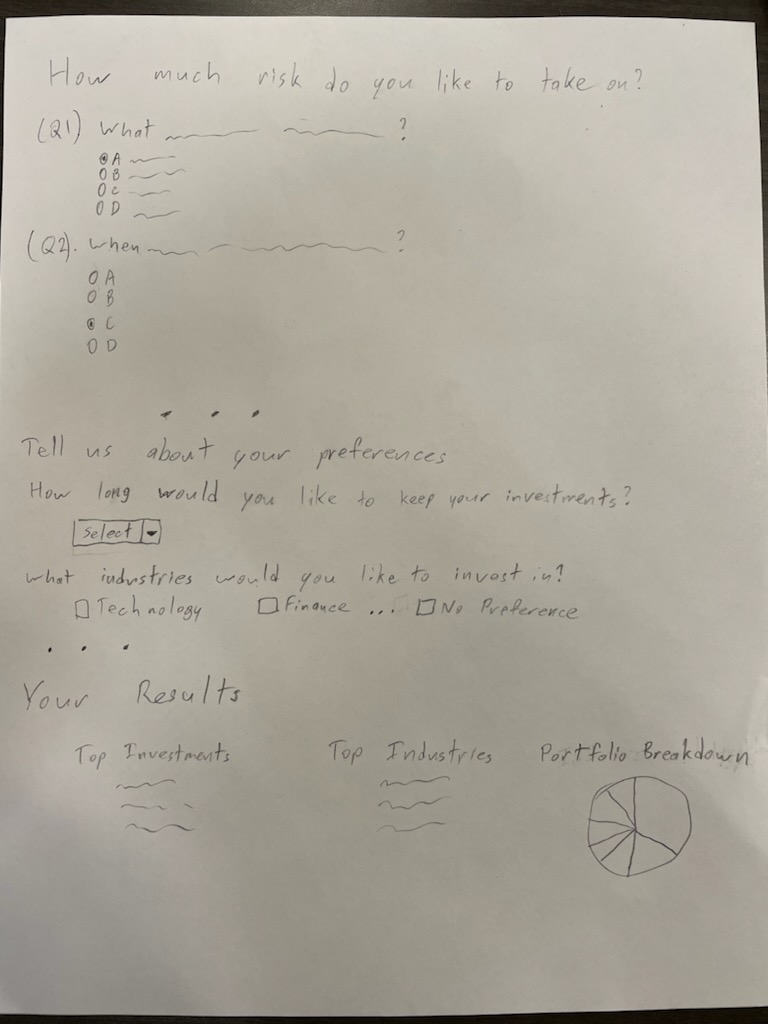 How much risk do you like to take on?
(Q1) What ?
A
B
C
D
(Q2). When ?
A
B
C
D
. . .
Tell us about your preferences
How long would you like to keep your investments?
Select
What industries would you like to invest in?
Technology Finance ... No Preference
. . .
Your Results
Top Investments Top Industries Portfolio Breakdown